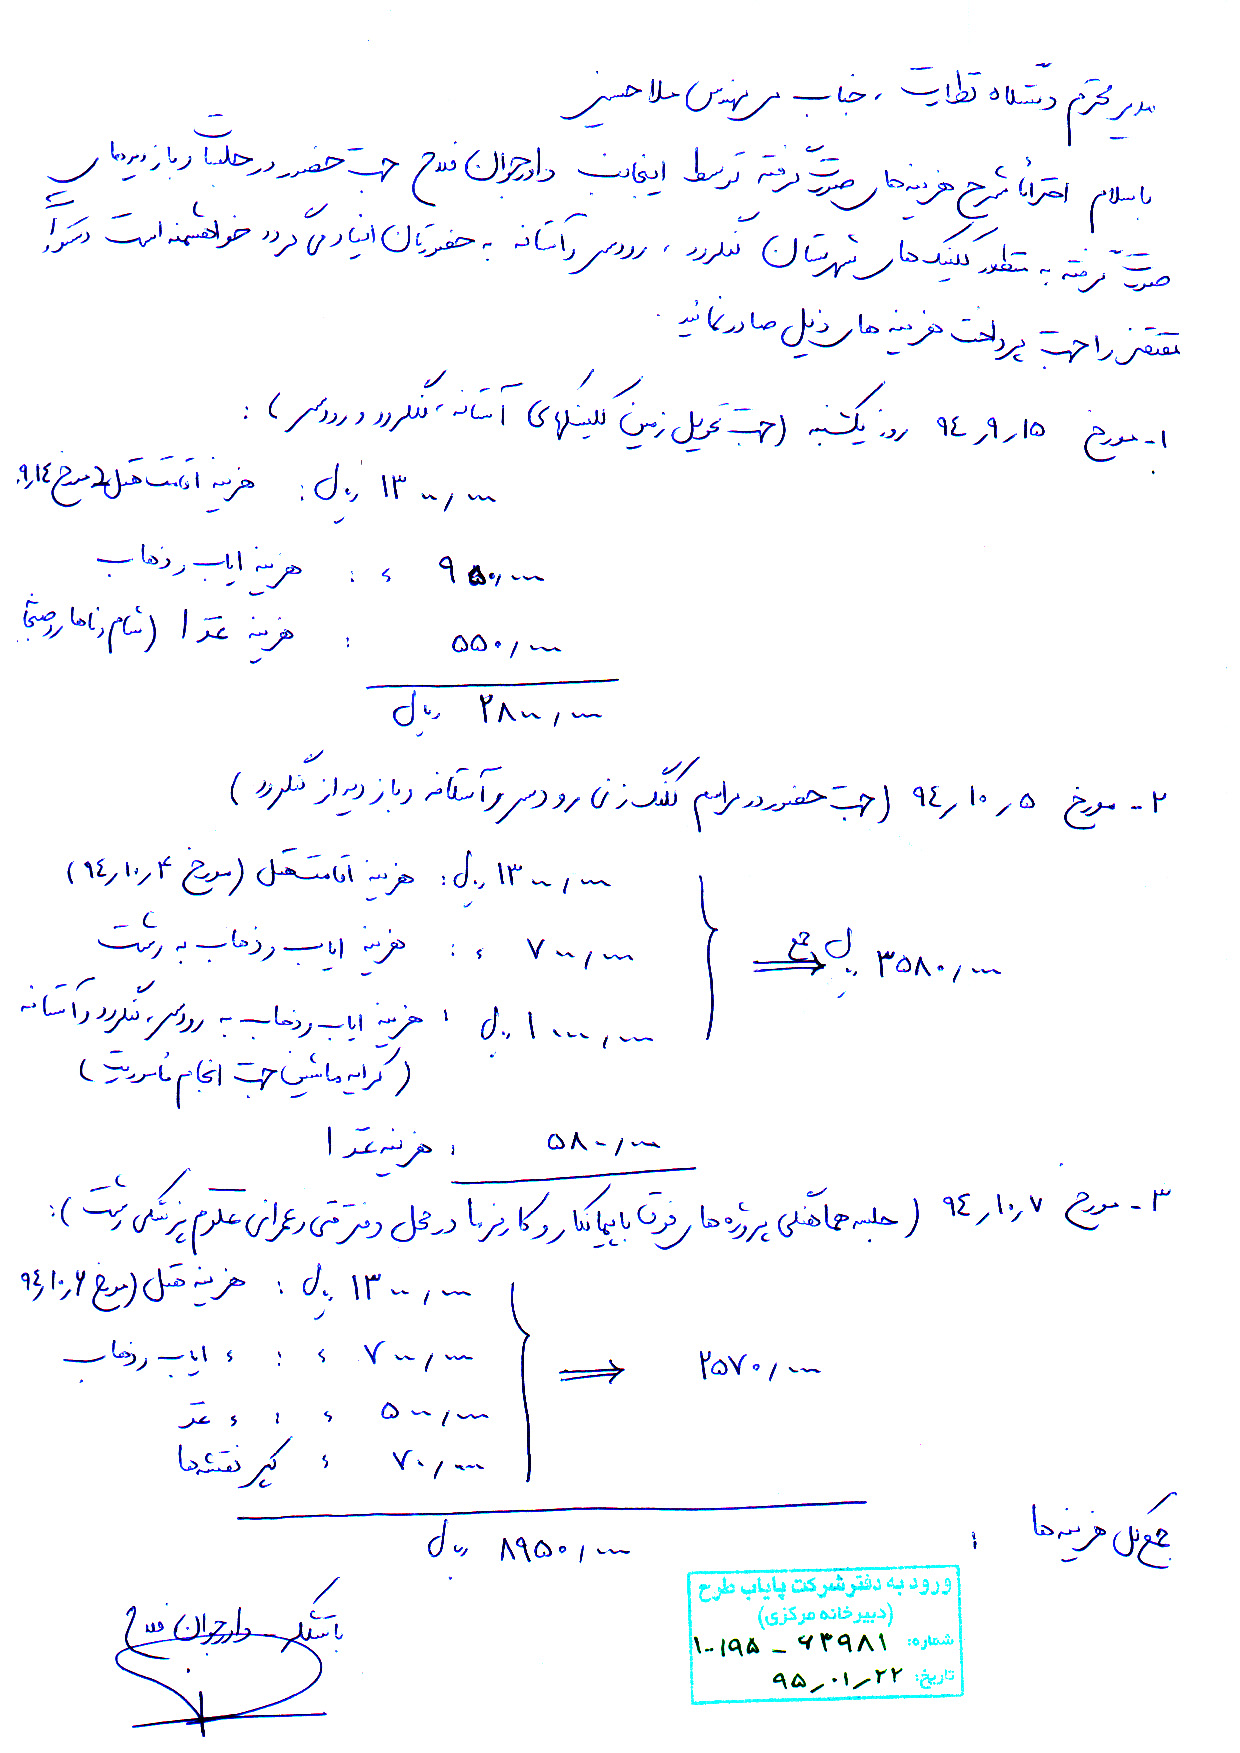 مدیر محترم دستگاه نظارت ، جناب مهندس ملاحسنی
باسلام احتراماً شرح هزینه‌های صورت گرفته توسط اینجانب دادرجوان فلاح جهت حضور در جلسات و بازدیدهای
صورت گرفته به منظور کلینیک‌های شهرستان لنگرود ، رودسر و آستانه به حضورتان ایفاد می گردد خواهشمند است دستورات
مقتضی را جهت پرداخت هزینه های ذیل صادر نمائید .
۱- مورخ ۹۴٫۹٫۱۵ روز یکشنبه (جهت تحویل زمین کلینیکهای آستانه ، لنگرود و رودسر) :
۱۳۰۰٫۰۰۰ ریال : هزینه اقامت هتل (مورخ ۹٫۱۴
۹۵۰٫۰۰۰ ء : هزینه ایاب و ذهاب
۵۵۰٫۰۰۰ : هزینه غذا (شام و ناهار و صبحانه
۲۸۰۰٫۰۰۰ ریال
۲- مورخ ۹۴٫۱۰٫۵ (جهت حضور در مراسم کلنگ زنی رودسر و آستانه و بازدید از لنگرود)
۱۳۰۰٫۰۰۰ ریال : هزینه اقامت هتل (مورخ ۹۴٫۱۰٫۴)
۷۰۰٫۰۰۰ ء : هزینه ایاب و ذهاب به رشت
جمع ⟹ ۳۵۸۰٫۰۰۰ ریال
۱۰۰۰٫۰۰۰ ریال : هزینه ایاب و ذهاب به رودسر، لنگرود و آستانه
(کرایه ماشین جهت انجام مأموریت)
۵۸۰٫۰۰۰ : هزینه غذا
۳- مورخ ۹۴٫۱۰٫۷ (جلسه هماهنگی پروژه های فوق با پیمانکار و کارفرما در محل دفتر فنی و عمرانی علوم پزشکی رشت) :
۱۳۰۰٫۰۰۰ ریال : هزینه هتل (مورخ ۹۴٫۱۰٫۶
۷۰۰٫۰۰۰ ء : ء ایاب و ذهاب
⟹ ۲۵۷۰٫۰۰۰
۵۰۰٫۰۰۰ ء : ء غذا
۷۰٫۰۰۰ ء کپی نقشه‌ها
جمع کل هزینه ها : ۸۹۵۰٫۰۰۰ ریال
باتشکر دادرجوان فلاح
ورود به دفتر شرکت پایاب طرح
(دبیرخانه مرکزی)
شماره: ۱۰۰۱۹۵ - ۶۳۹۸۱
تاریخ: ۹۵٫۰۱٫۲۲